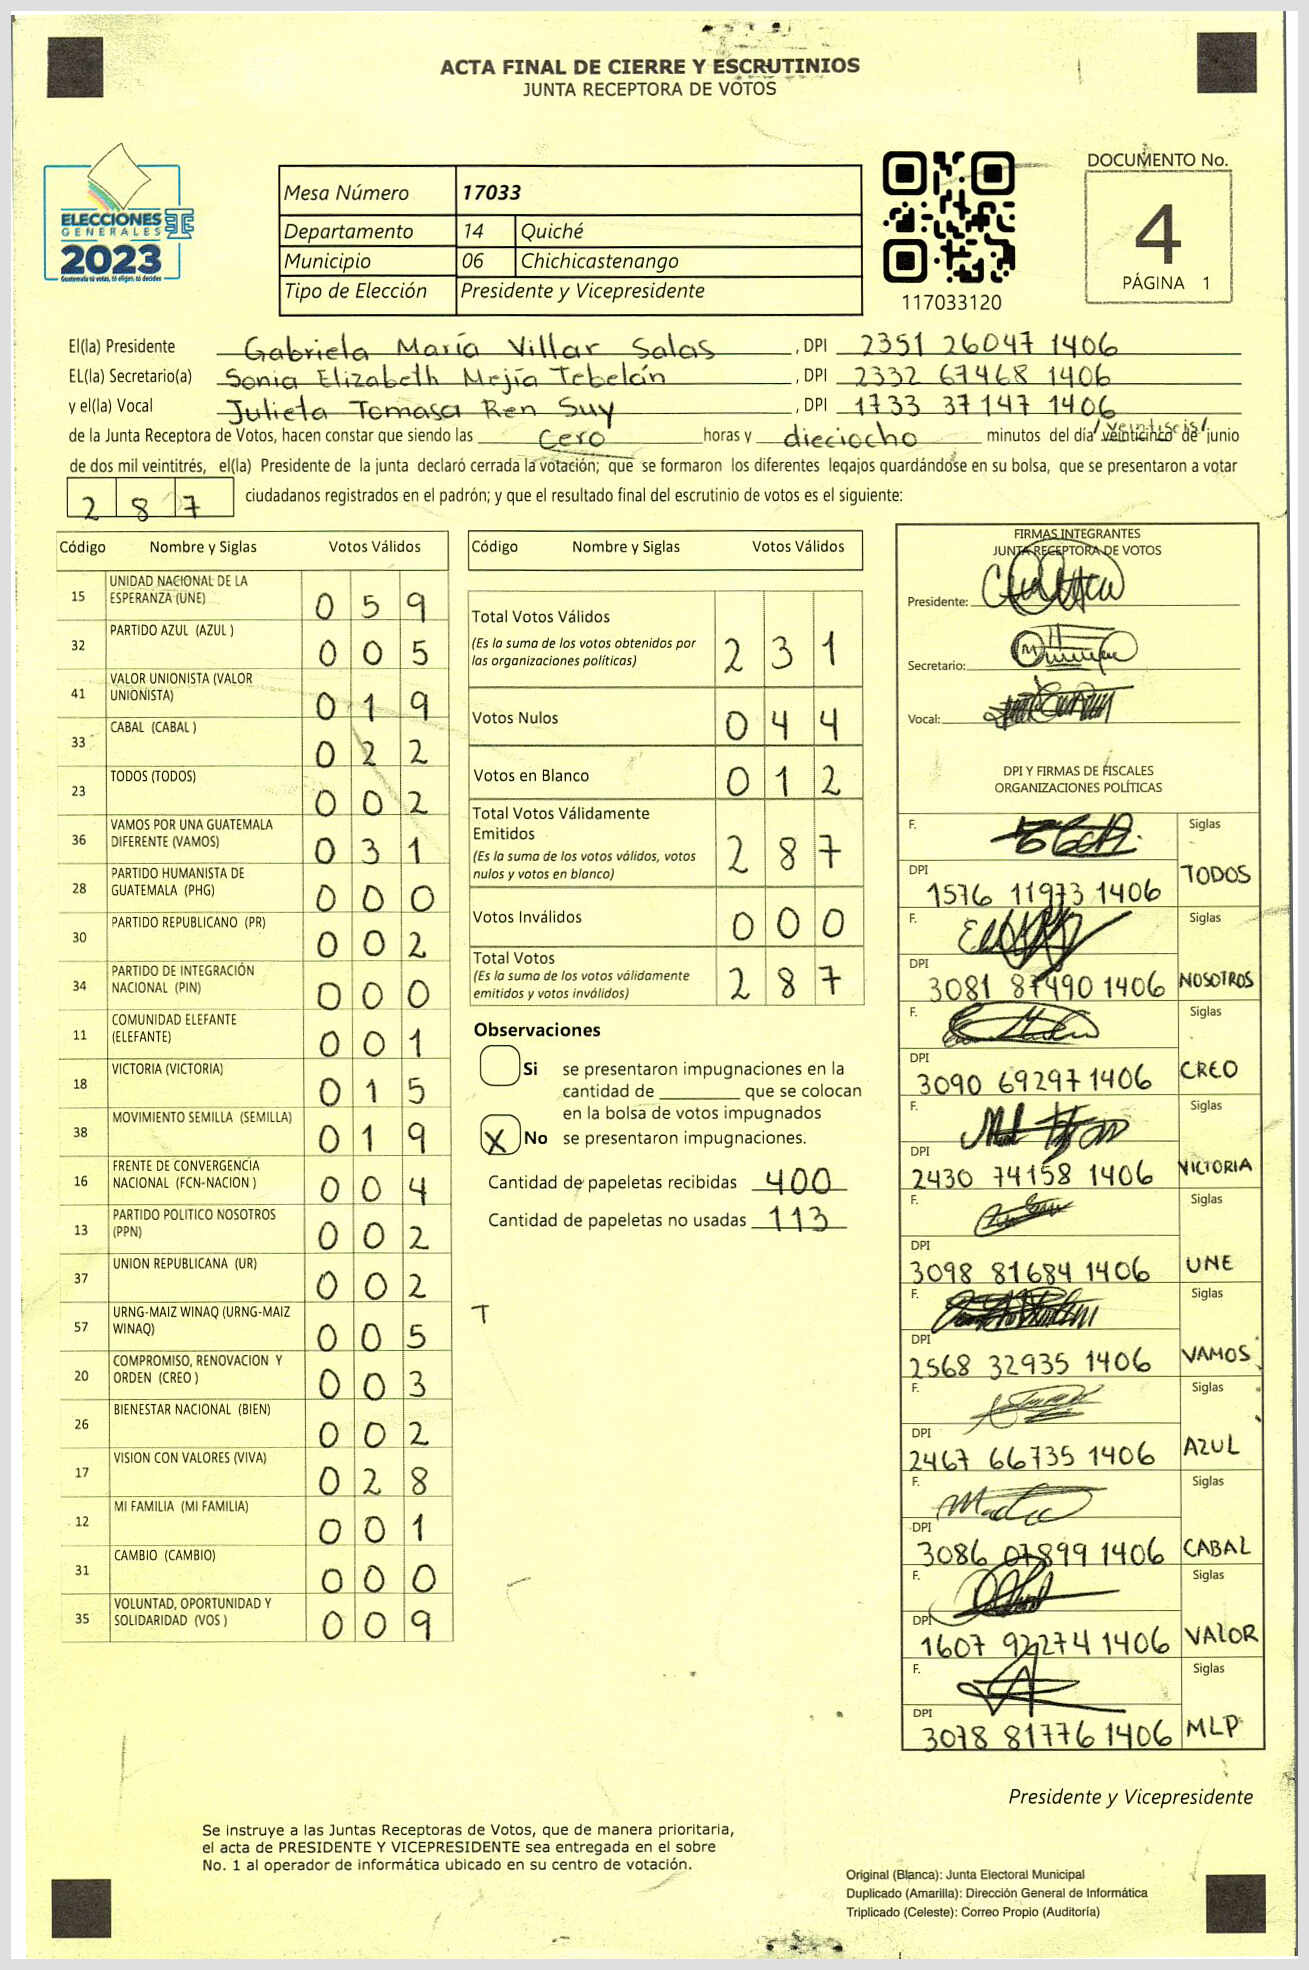 ACTA FINAL DE CIERRE Y ESCRUTINIOS
JUNTA RECEPTORA DE VOTOS
ELECCIONES
GENERALES
2023
Guatemala tú votas, tú eliges, tú decides
Mesa Número 17033
Departamento 14 Quiché
Municipio 06 Chichicastenango
Tipo de Elección Presidente y Vicepresidente
117033120
DOCUMENTO No.
4
PÁGINA 1
El(la) Presidente Gabriela María Villar Salas, DPI 2351 26047 1406
EL(la) Secretario(a) Sonia Elizabeth Mejía Tebelán, DPI 2332 67468 1406
y el(la) Vocal Julieta Tomasa Ren Suy, DPI 1733 37147 1406
de la Junta Receptora de Votos, hacen constar que siendo las Cero horas y dieciocho minutos del día /veintiseis/ veinticinco de junio
de dos mil veintitrés, el(la) Presidente de la junta declaró cerrada la votación; que se formaron los diferentes legajos guardándose en su bolsa, que se presentaron a votar
287 ciudadanos registrados en el padrón; y que el resultado final del escrutinio de votos es el siguiente:
Código Nombre y Siglas Votos Válidos
15 UNIDAD NACIONAL DE LA ESPERANZA (UNE) 059
32 PARTIDO AZUL (AZUL ) 005
41 VALOR UNIONISTA (VALOR UNIONISTA) 019
33 CABAL (CABAL ) 022
23 TODOS (TODOS) 002
36 VAMOS POR UNA GUATEMALA DIFERENTE (VAMOS) 031
28 PARTIDO HUMANISTA DE GUATEMALA (PHG) 000
30 PARTIDO REPUBLICANO (PR) 002
34 PARTIDO DE INTEGRACIÓN NACIONAL (PIN) 000
11 COMUNIDAD ELEFANTE (ELEFANTE) 001
18 VICTORIA (VICTORIA) 015
38 MOVIMIENTO SEMILLA (SEMILLA) 019
16 FRENTE DE CONVERGENCIA NACIONAL (FCN-NACION ) 004
13 PARTIDO POLITICO NOSOTROS (PPN) 002
37 UNION REPUBLICANA (UR) 002
57 URNG-MAIZ WINAQ (URNG-MAIZ WINAQ) 005
20 COMPROMISO, RENOVACION Y ORDEN (CREO ) 003
26 BIENESTAR NACIONAL (BIEN) 002
17 VISION CON VALORES (VIVA) 028
12 MI FAMILIA (MI FAMILIA) 001
31 CAMBIO (CAMBIO) 000
35 VOLUNTAD, OPORTUNIDAD Y SOLIDARIDAD (VOS ) 009
Código Nombre y Siglas Votos Válidos
Total Votos Válidos 231
(Es la suma de los votos obtenidos por
las organizaciones políticas)
Votos Nulos 044
Votos en Blanco 012
Total Votos Válidamente
Emitidos 287
(Es la suma de los votos válidos, votos
nulos y votos en blanco)
Votos Inválidos 000
Total Votos 287
(Es la suma de los votos válidamente
emitidos y votos inválidos)
Observaciones
Si se presentaron impugnaciones en la
cantidad de ________ que se colocan
en la bolsa de votos impugnados
X No se presentaron impugnaciones.
Cantidad de papeletas recibidas 400
Cantidad de papeletas no usadas 113
T
FIRMAS INTEGRANTES
JUNTA RECEPTORA DE VOTOS
Presidente:
Secretario:
Vocal:
DPI Y FIRMAS DE FISCALES
ORGANIZACIONES POLÍTICAS
F. Siglas
DPI 1576 11973 1406 TODOS
F. Siglas
DPI 3081 87490 1406 NOSOTROS
F. Siglas
DPI 3090 69297 1406 CREO
F. Siglas
DPI 2430 74158 1406 VICTORIA
F. Siglas
DPI 3098 81684 1406 UNE
F. Siglas
DPI 2568 32935 1406 VAMOS
F. Siglas
DPI 2467 66735 1406 AZUL
F. Siglas
DPI 3086 07899 1406 CABAL
F. Siglas
DPI 1607 92274 1406 VALOR
F. Siglas
DPI 3078 81776 1406 MLP
Presidente y Vicepresidente
Se instruye a las Juntas Receptoras de Votos, que de manera prioritaria,
el acta de PRESIDENTE Y VICEPRESIDENTE sea entregada en el sobre
No. 1 al operador de informática ubicado en su centro de votación.
Original (Blanca): Junta Electoral Municipal
Duplicado (Amarilla): Dirección General de Informática
Triplicado (Celeste): Correo Propio (Auditoría)